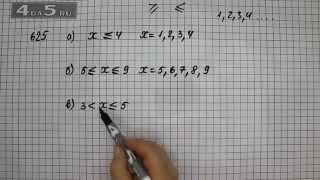 4DA5.RU
⩾ ⩽
1, 2, 3, 4 ....
625 а) x ⩽ 4 x = 1, 2, 3, 4
б) 5 ⩽ x ⩽ 9 x = 5, 6, 7, 8, 9
в) 3 < x ⩽ 5